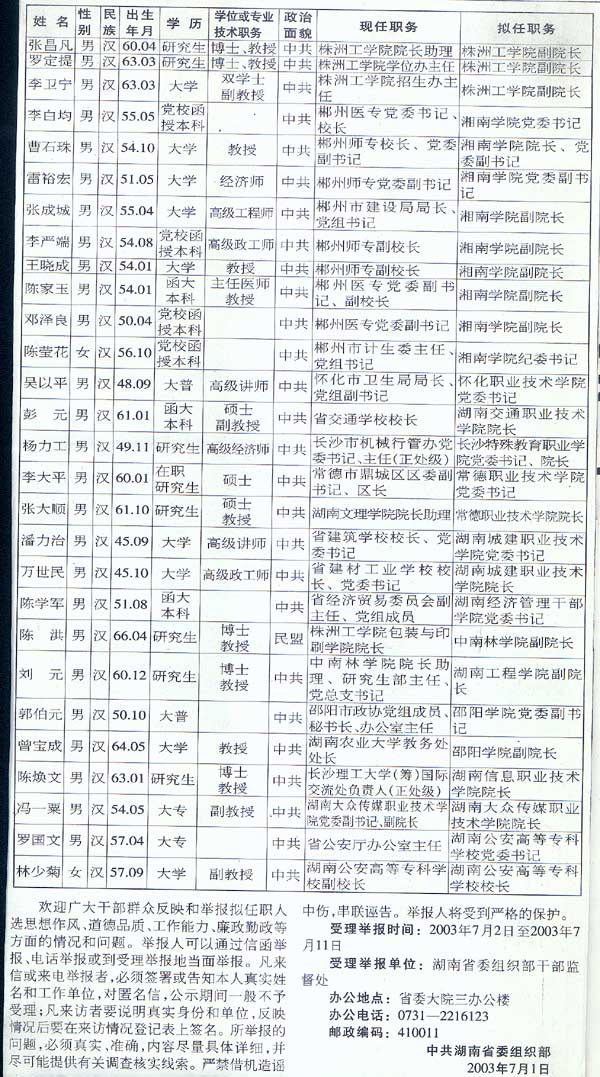 姓 名 性别 民族 出生年月 学 历 学位或专业技术职务 政治面貌 现任职务 拟任职务
张昌凡 男 汉 60.04 研究生 博士、教授 中共 株洲工学院院长助理 株洲工学院副院长
罗定提 男 汉 63.03 研究生 博士、教授 中共 株洲工学院学位办主任 株洲工学院副院长
李卫宁 男 汉 63.03 大学 双学士副教授 中共 株洲工学院招生办主任 株洲工学院副院长
李白均 男 汉 55.05 党校函授本科 中共 郴州医专党委书记、校长 湘南学院党委书记
曹石珠 男 汉 54.10 大学 教授 中共 郴州师专校长、党委副书记 湘南学院院长、党委副书记
雷裕宏 男 汉 51.05 大学 经济师 中共 郴州师专党委副书记 湘南学院党委副书记
张成城 男 汉 55.04 大学 高级工程师 中共 郴州市建设局局长、党组书记 湘南学院副院长
李严端 男 汉 54.08 党校函授本科 高级政工师 中共 郴州师专副校长 湘南学院副院长
王晓成 男 汉 54.01 大学 教授 中共 郴州师专副校长 湘南学院副院长
陈家玉 男 汉 54.01 函大本科 主任医师教授 中共 郴州医专党委副书记、副校长 湘南学院副院长
邓泽良 男 汉 50.04 党校函授本科 中共 郴州医专党委副书记 湘南学院副院长
陈莹花 女 汉 56.10 党校函授本科 中共 郴州市计生委主任、党组书记 湘南学院纪委书记
吴以平 男 汉 48.09 大普 高级讲师 中共 怀化市卫生局局长、党组副书记 怀化职业技术学院党委书记
彭 元 男 汉 61.01 函大本科 硕士副教授 中共 省交通学校校长 湖南交通职业技术学院院长
杨力工 男 汉 49.11 研究生 高级经济师 中共 长沙市机械行管办党委书记、主任(正处级) 长沙特殊教育职业学院党委书记、院长
李大平 男 汉 60.01 在职研究生 硕士 中共 常德市鼎城区区委副书记、区长 常德职业技术学院党委书记
张大顺 男 汉 61.10 研究生 硕士教授 中共 湖南文理学院院长助理 常德职业技术学院院长
潘力治 男 汉 45.09 大学 高级讲师 中共 省建筑学校校长、党委书记 湖南城建职业技术学院党委书记
万世民 男 汉 45.10 大学 高级政工师 中共 省建材工业学校校长、党委书记 湖南城建职业技术学院院长
陈学军 男 汉 51.08 函大本科 中共 省经济贸易委员会副主任、党组成员 湖南经济管理干部学院党委书记
陈 洪 男 汉 66.04 研究生 博士教授 民盟 株洲工学院包装与印刷学院院长 中南林学院副院长
刘 元 男 汉 60.12 研究生 博士教授 中共 中南林学院院长助理、研究生部主任、党总支书记 湖南工程学院副院长
郭伯元 男 汉 50.10 大普 中共 邵阳市政协党组成员、秘书长、办公室主任 邵阳学院党委副书记
曾宝成 男 汉 64.05 大学 教授 中共 湖南农业大学教务处处长 邵阳学院副院长
陈焕文 男 汉 63.01 研究生 博士教授 中共 长沙理工大学(筹)国际交流处负责人(正处级) 湖南信息职业技术学院院长
冯一粟 男 汉 54.05 大专 副教授 中共 湖南大众传媒职业技术学院党委副书记、副院长 湖南大众传媒职业技术学院院长
罗国文 男 汉 57.04 大专 中共 省公安厅办公室主任 湖南公安高等专科学校党委书记
林少菊 女 汉 57.09 大学 副教授 中共 湖南公安高等专科学校副校长 湖南公安高等专科学校校长
欢迎广大干部群众反映和举报拟任职人
选思想作风、道德品质、工作能力、廉政勤政等
方面的情况和问题。举报人可以通过信函举
报、电话举报或到受理举报地当面举报。凡来
信或来电举报者,必须签署或告知本人真实姓
名和工作单位,对匿名信,公示期间一般不予
受理;凡来访者要说明真实身份和单位,反映
情况后要在来访情况登记表上签名。所举报的
问题,必须真实、准确,内容尽量具体详细,并
尽可能提供有关调查核实线索。严禁借机造谣
中伤,串联诬告。举报人将受到严格的保护。
受理举报时间:2003年7月2日至2003年7
月11日
受理举报单位:湖南省委组织部干部监
督处
办公地点:省委大院三办公楼
办公电话:0731—2216123
邮政编码:410011
中共湖南省委组织部
2003年7月1日